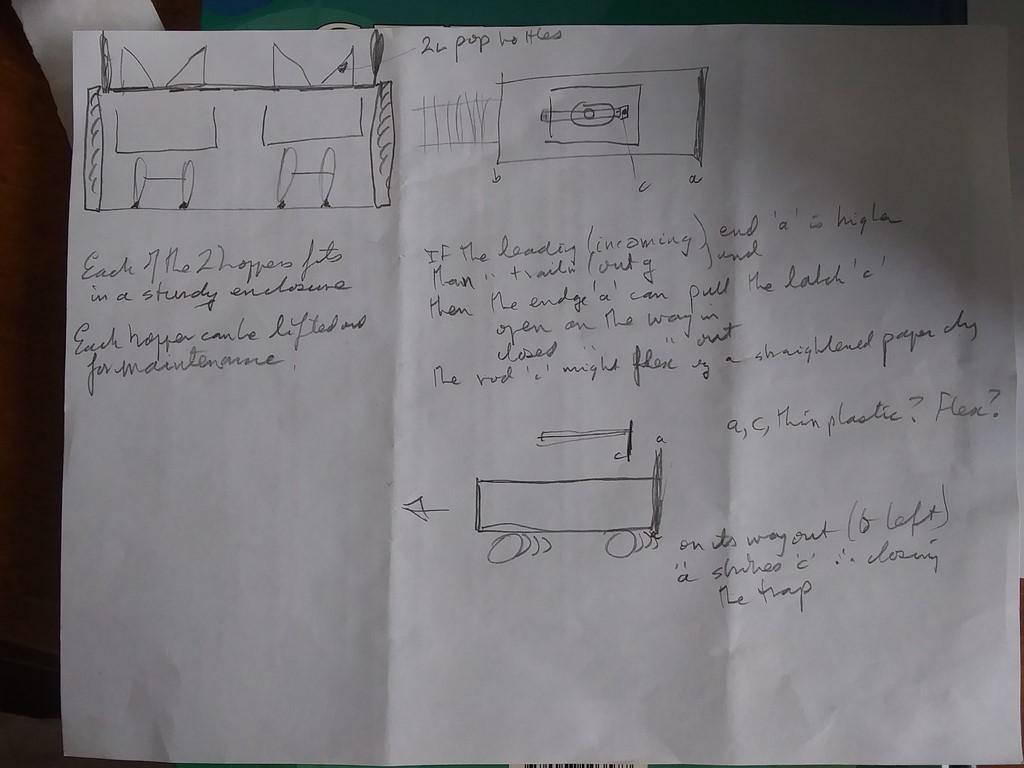 2L pop bottles
b
c
a
Each of the 2 hoppers fits
in a sturdy enclosure
Each hopper can be lifted out
for maintenance.
If the leading (incoming) end 'a' is higher
than " trailin (outg) end
then the endge 'a' can pull the latch 'c'
open on the way in
closed " " " out
the rod 'c' might flex eg a straightened paper clip
a, c, thin plastic? Flex?
c
a
on its way out (to left)
'a' strikes 'c' ∴ closing
the trap